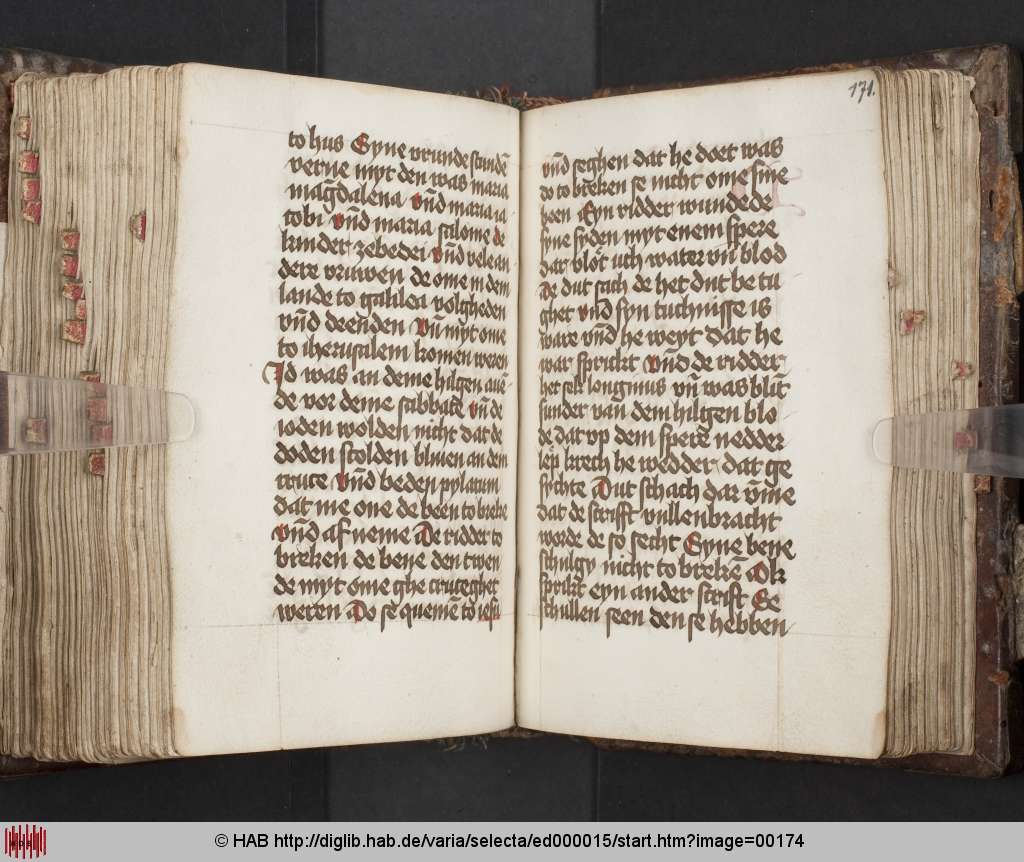 to hus Syne vrunde stundē
verne myt den was maria
magdalena vnd maria ia
cobi vnd maria salome de
kinder zebedei vnd vele an
dere vruwen de ome in dem
lande to galilea volgheden
vnd deenden vn̄ myt ome
to iherusalem komen weren
Id was an deme hilgen aue
de vor deme sabbate vn̄ de
ioden wolden nicht dat de
doden scolden bliuen an dem
cruce vnd beden pylatum
dat me one de been to breke
vnd af neme De ridder to
breken de bene den twen
de myt ome ghe cruceghet
weren Do se quemē to iesu
171.
vnd seghen dat he doet was
do to breken se nicht ome sine
been Eyn ridder wundede
syne syden myt enem spere
dar blot vth water vn̄ blod
De dut sach de het dut be tu
ghet vnd syn tuchnisse is
ware vnd he weyt dat he
war sprickt vnd de ridder
het sek longinus vn̄ was blint
sunder van dem hilgen blo
de dat vp dem spere nedder
lep krech he wedder dat ge
sychte Dut schach dar v̄me
dat de scrifft vullenbracht
worde de so secht Syne bene
schulgy nicht to brekē Ok
sprikt eyn ander scrift Se
schullen seen den se hebben
© HAB http://diglib.hab.de/varia/selecta/ed000015/start.htm?image=00174